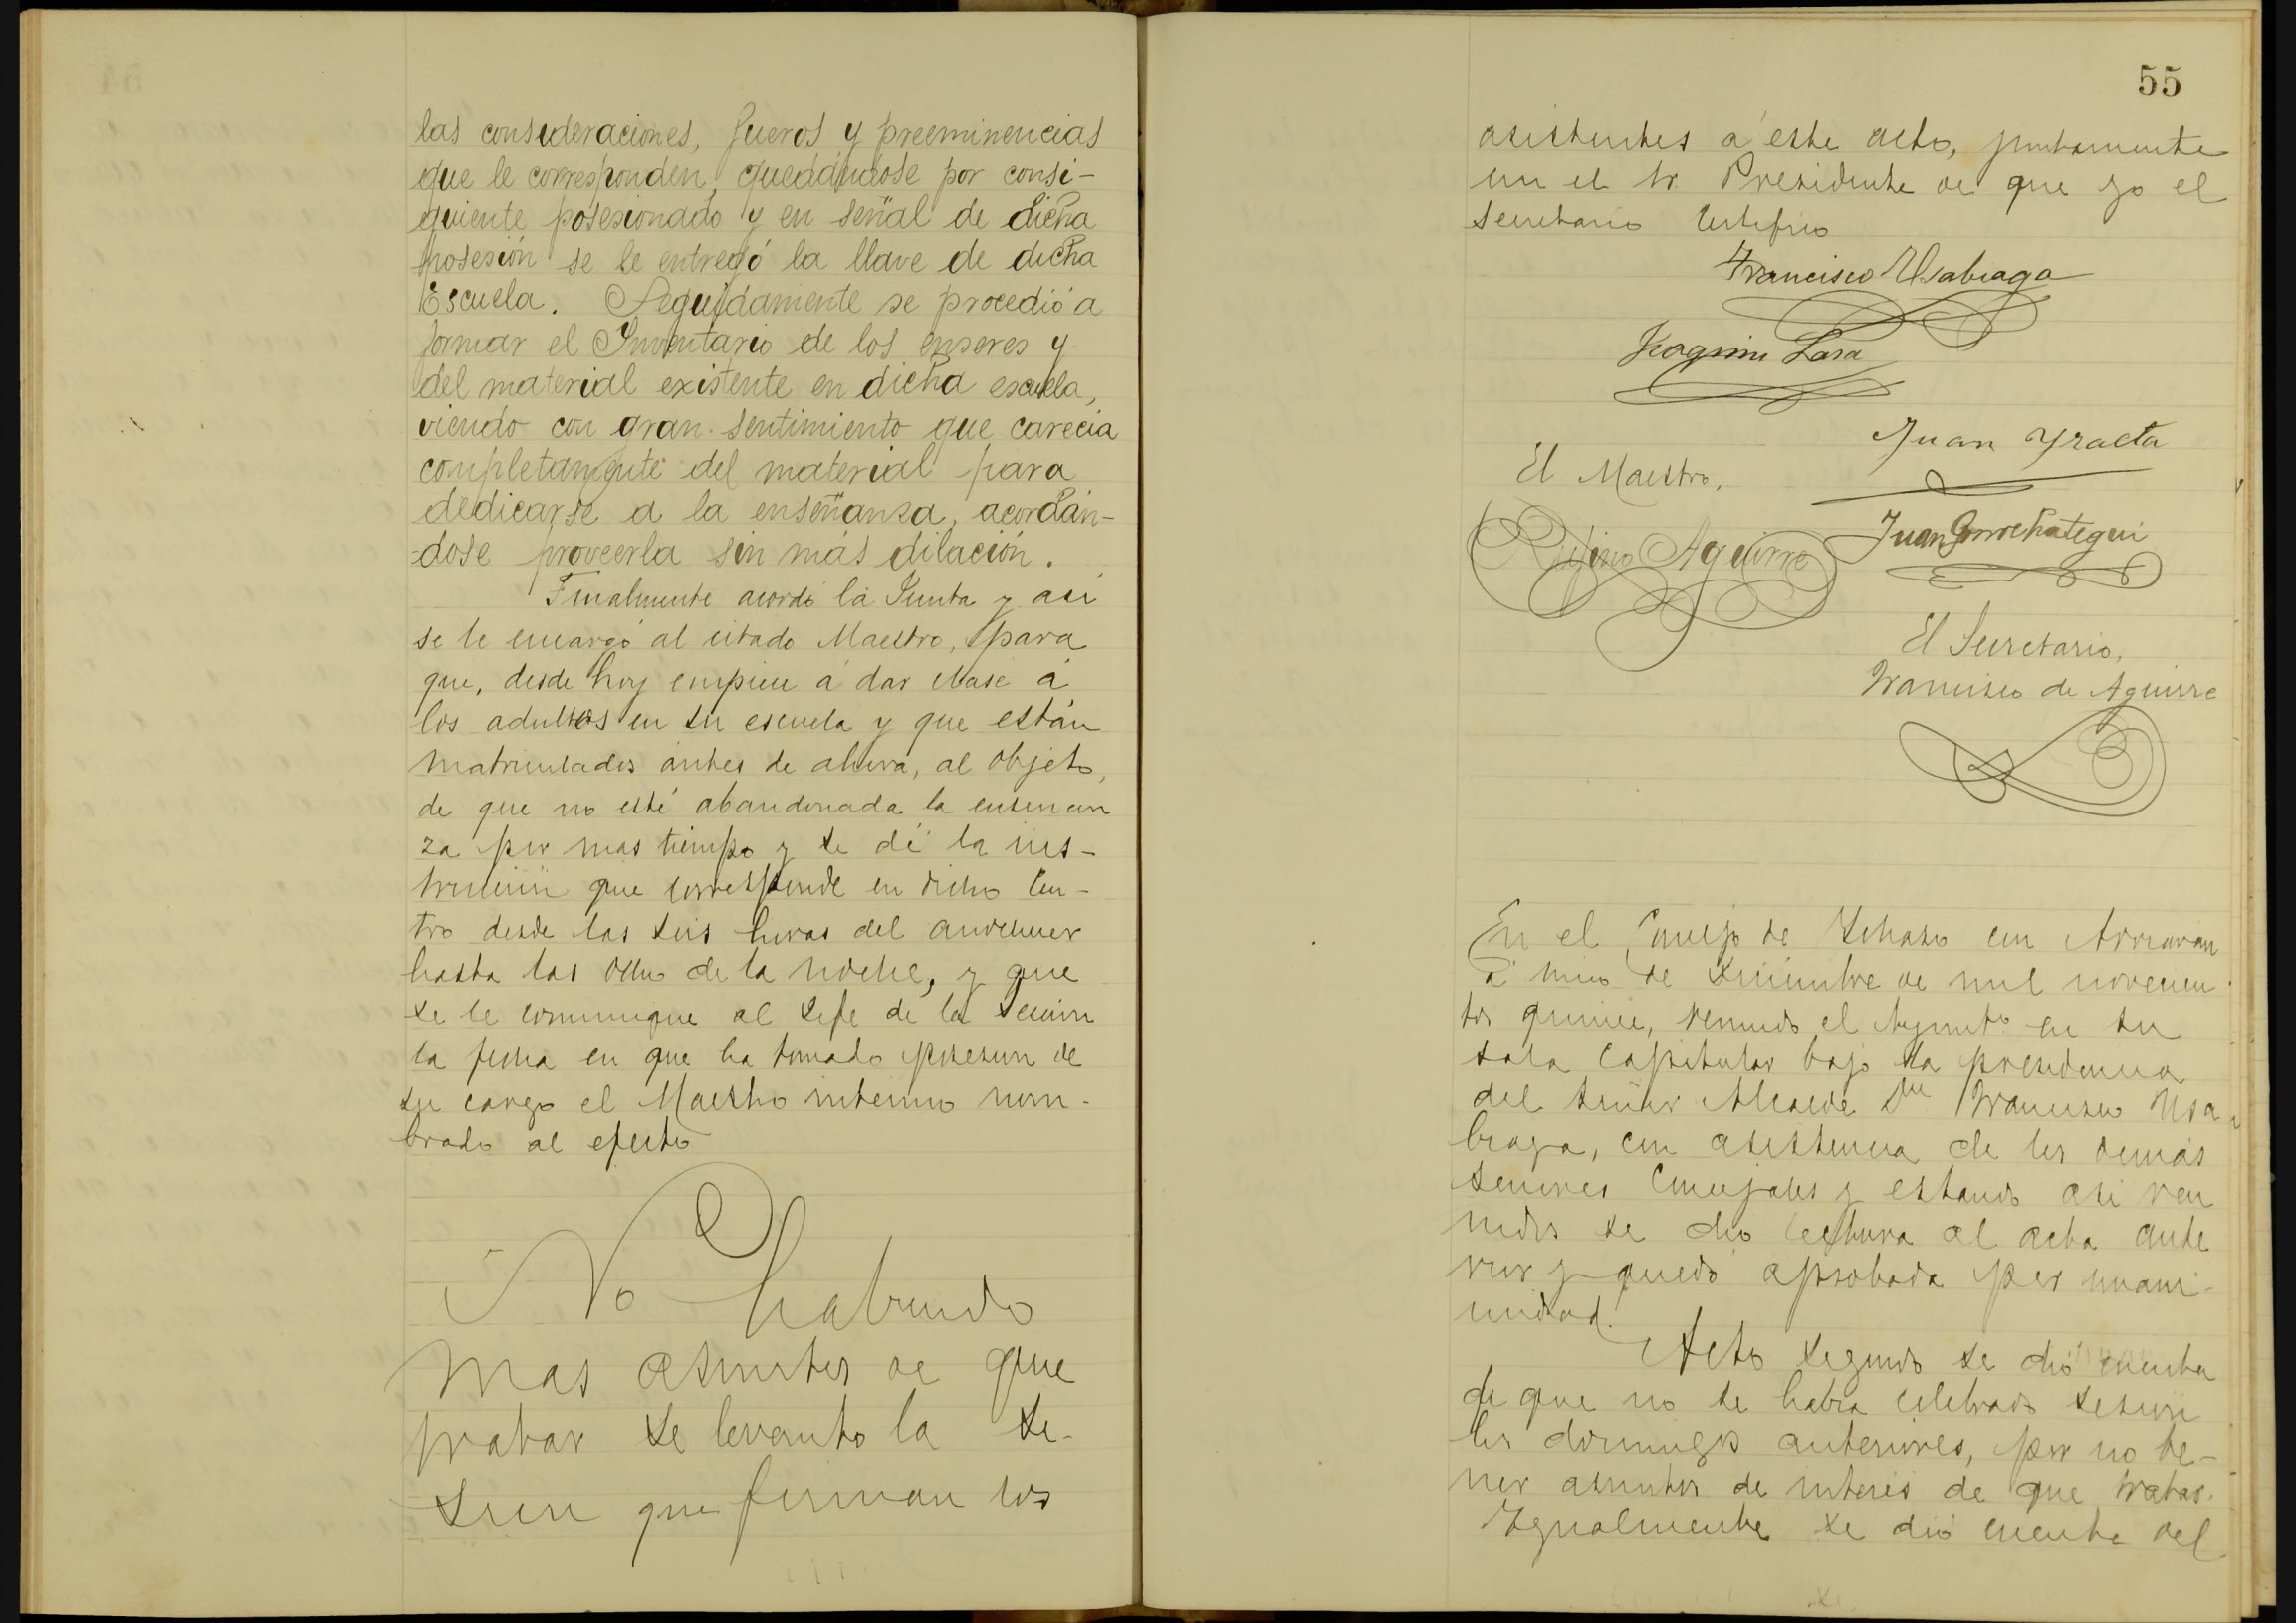 las consideraciones, fueros y preeminencias
que le corresponden, quedándose por consi-
guiente posesionado y en señal de dicha
posesión se le entregó la llave de dicha
Escuela. Seguidamente se procedió a
formar el Inventario de los enseres y
del material existente en dicha escuela,
viendo con gran sentimiento que carecía
completamente del material para
dedicarse a la enseñanza, acordán-
-dose proveerla sin más dilación.
Finalmente acordó la Junta y asi
se le encargó al citado Maestro, para
que, desde hoy empiece á dar clase á
los adultos en su escuela y que están
matriculados ántes de ahora, al objeto,
de que no esté abandonada la ensenan
za por mas tiempo y se dé la ins-
trucción que corresponde en dicho Cen-
tro desde las seis horas del anochecer
hasta las ocho de la noche, y que
se le comunique al Jefe de la Sección
la fecha en que ha tomado posesion de
su cargo el Maestro interino nom-
brado al efecto
No habiendo
mas asuntos de que
tratar se levanto la se-
sion que firman los
55
asistentes á este acto, juntamente
con el Sr. Presidente de que yo el
secretario Certifico
Francisco Usabiaga
Joaquin Lasa
Juan Yraeta
El Maestro,
Rufino Aguirre
Juan Gorrochategui
El Secretario,
Francisco de Aguirre
En el Concejo de Ichaso en Arriaran
á cinco de Diciembre de mil novecien
tos quince, reunido el Ayunto en su
sala Capitular bajo la presidencia
del Señor Alcalde Dn Francisco Usa
biaga, con asistencia de los demás
senores Concejales y estando asi reu
nidos se dio lectura al acta ante
rior y quedó aprobada por unani-
midad.
Acto segundo se dió cuenta
de que no se habia celebrado sesion
los domingos anteriores, por no te-
ner asuntos de interés de que tratar.
Ygualmente se dió cuenta del